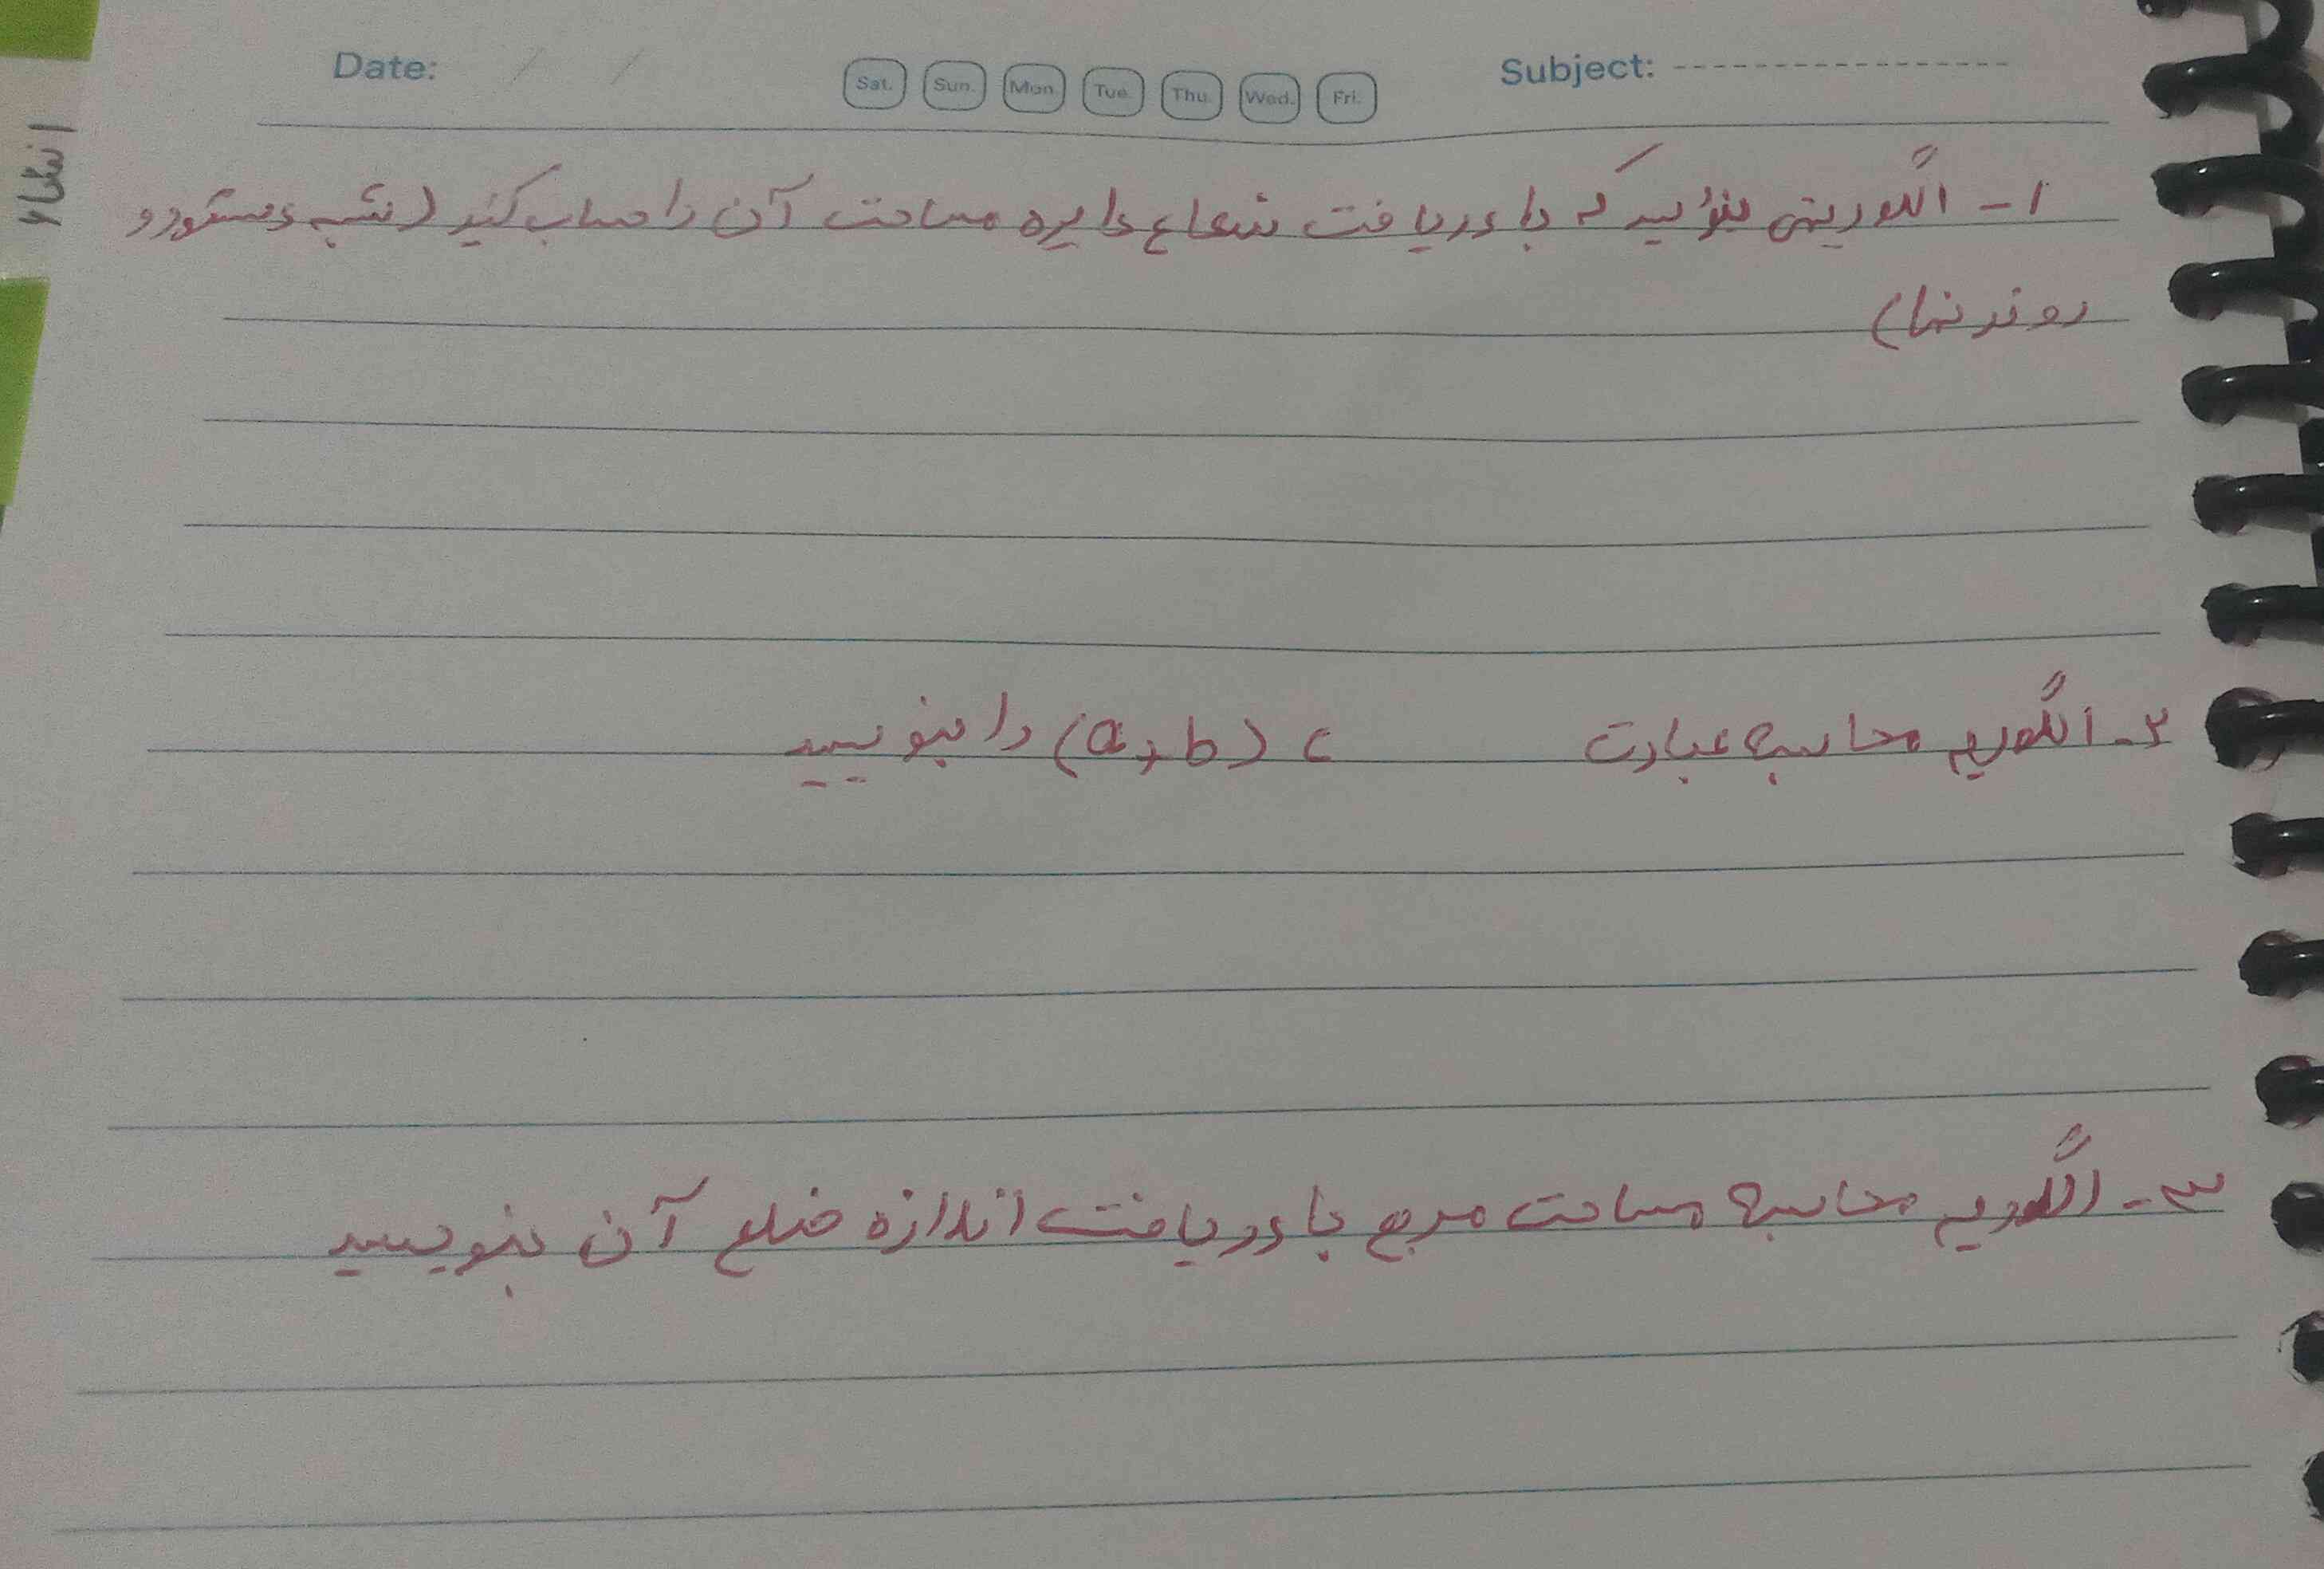 Date: / / Sat. Sun. Mon. Tue. Thu. Wed. Fri. Subject:
۱- الگوریتمی بنویسید که با دریافت شعاع دایره مساحت آن را حساب کنید (شبه دستور و
روندنما)
۲- الگوریتم محاسبه عبارت c (a+b) را بنویسید
۳- الگوریتم محاسبه مساحت مربع با دریافت اندازه ضلع آن بنویسید